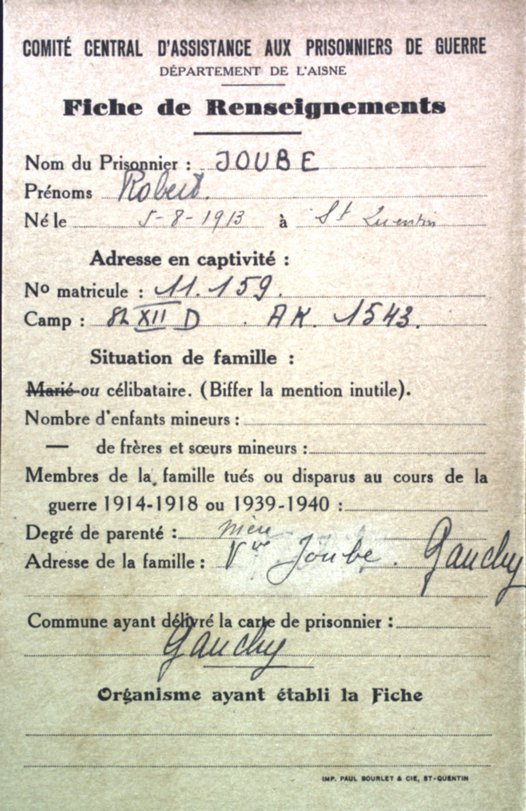 COMITÉ CENTRAL D'ASSISTANCE AUX PRISONNIERS DE GUERRE
DÉPARTEMENT DE L'AISNE
Fiche de Renseignements
Nom du Prisonnier : JOUBE
Prénoms Robert.
Né le 5-8-1913 à St Quentin
Adresse en captivité :
No matricule : 11.159.
Camp : XII D. AK. 1543.
Situation de famille :
Marié ou célibataire. (Biffer la mention inutile).
Nombre d'enfants mineurs :
— de frères et sœurs mineurs :
Membres de la famille tués ou disparus au cours de la
guerre 1914-1918 ou 1939-1940 :
Degré de parenté : mère
Adresse de la famille : Vve Joube. Gauchy
Commune ayant délivré la carte de prisonnier :
Gauchy
Organisme ayant établi la Fiche
IMP. PAUL BOURLET & CIE, ST-QUENTIN